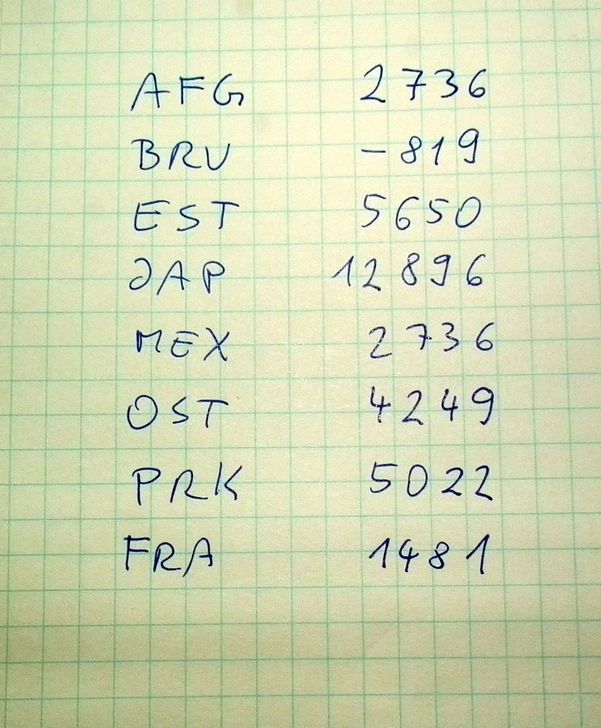 AFG 2736
BRU -819
EST 5650
JAP 12896
MEX 2736
OST 4249
PRK 5022
FRA 1481